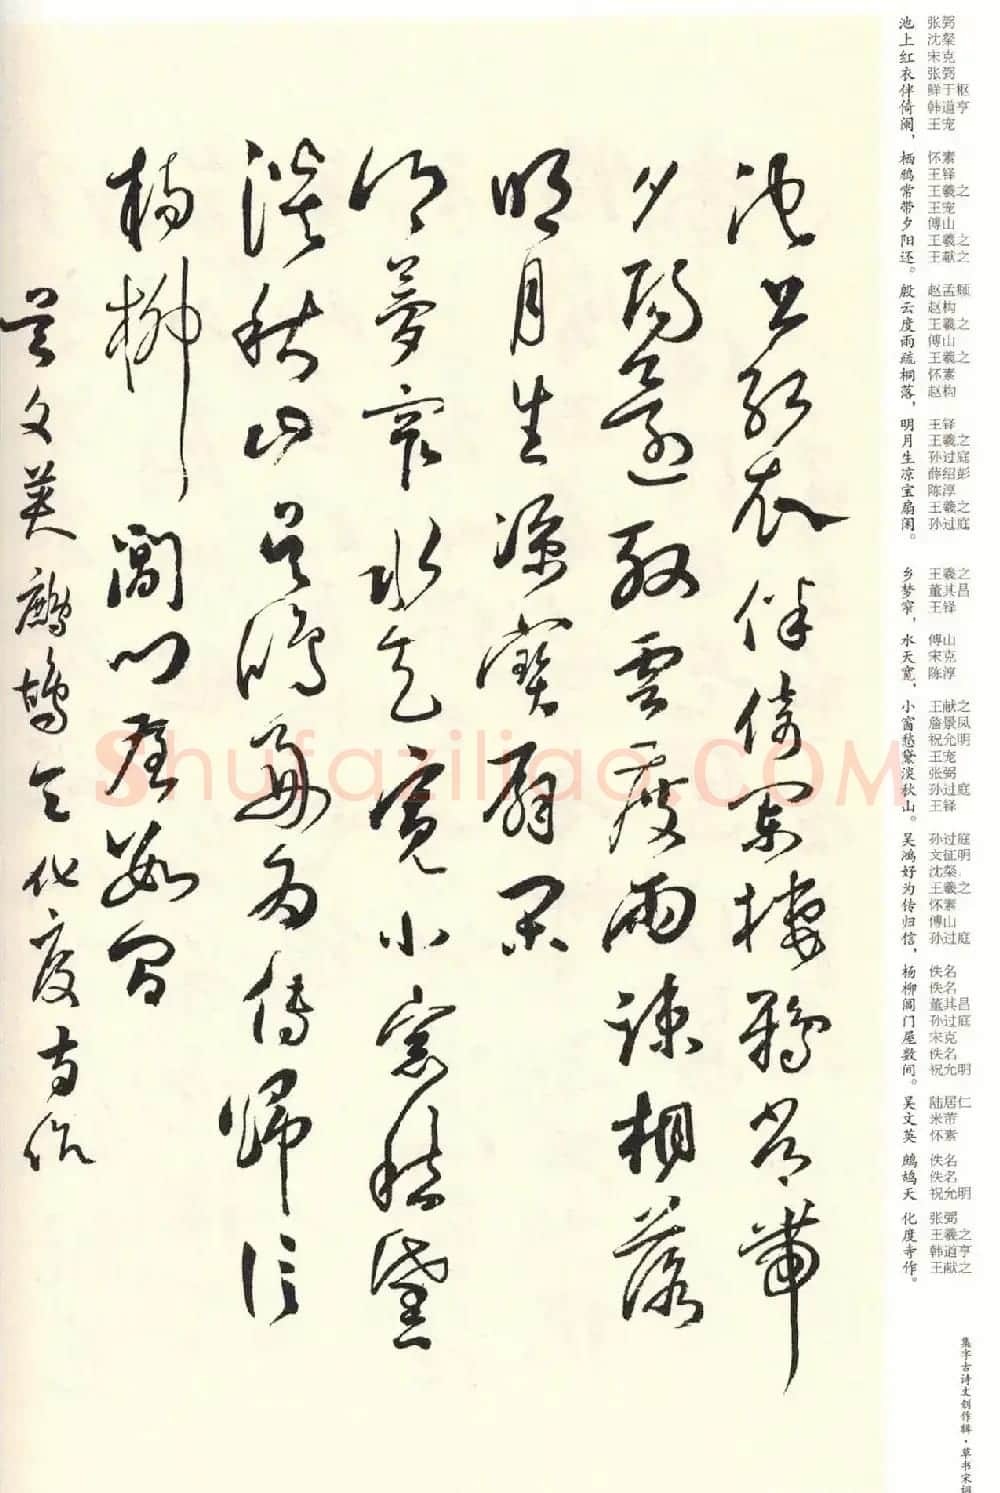 池上紅衣伴倚闌棲鴉常帶
夕陽還殷雲度雨疎桐落
明月生涼寶扇閑
鄉夢窄水天寬小窗愁黛
淡秋山吳鴻好為傳歸信
楊柳閶門屋數間
吳文英鷓鴣天化度寺作
池 张弼
上 沈粲
红 宋克
衣 张弼
伴 鲜于枢
倚 韩道亨
阑， 王宠
栖 怀素
鸦 王铎
常 王羲之
带 王宠
夕 傅山
阳 王羲之
还。 王献之
殷 赵孟頫
云 赵构
度 王羲之
雨 傅山
疏 王羲之
桐 怀素
落， 赵构
明 王铎
月 王羲之
生 孙过庭
凉 薛绍彭
宝 陈淳
扇 王羲之
闲。 孙过庭
乡 王羲之
梦 董其昌
窄， 王铎
水 傅山
天 宋克
宽， 陈淳
小 王献之
窗 詹景凤
愁 祝允明
黛 王宠
淡 张弼
秋 孙过庭
山。 王铎
吴 孙过庭
鸿 文征明
好 沈粲
为 王羲之
传 怀素
归 傅山
信， 孙过庭
杨 佚名
柳 佚名
阊 董其昌
门 孙过庭
屋 宋克
数 佚名
间。 祝允明
吴 陆居仁
文 米芾
英 怀素
鹧 佚名
鸪 佚名
天 祝允明
化 张弼
度 王羲之
寺 韩道亨
作。 王献之
集字古诗文创作辑·草书宋词
Shufaziliao.COM